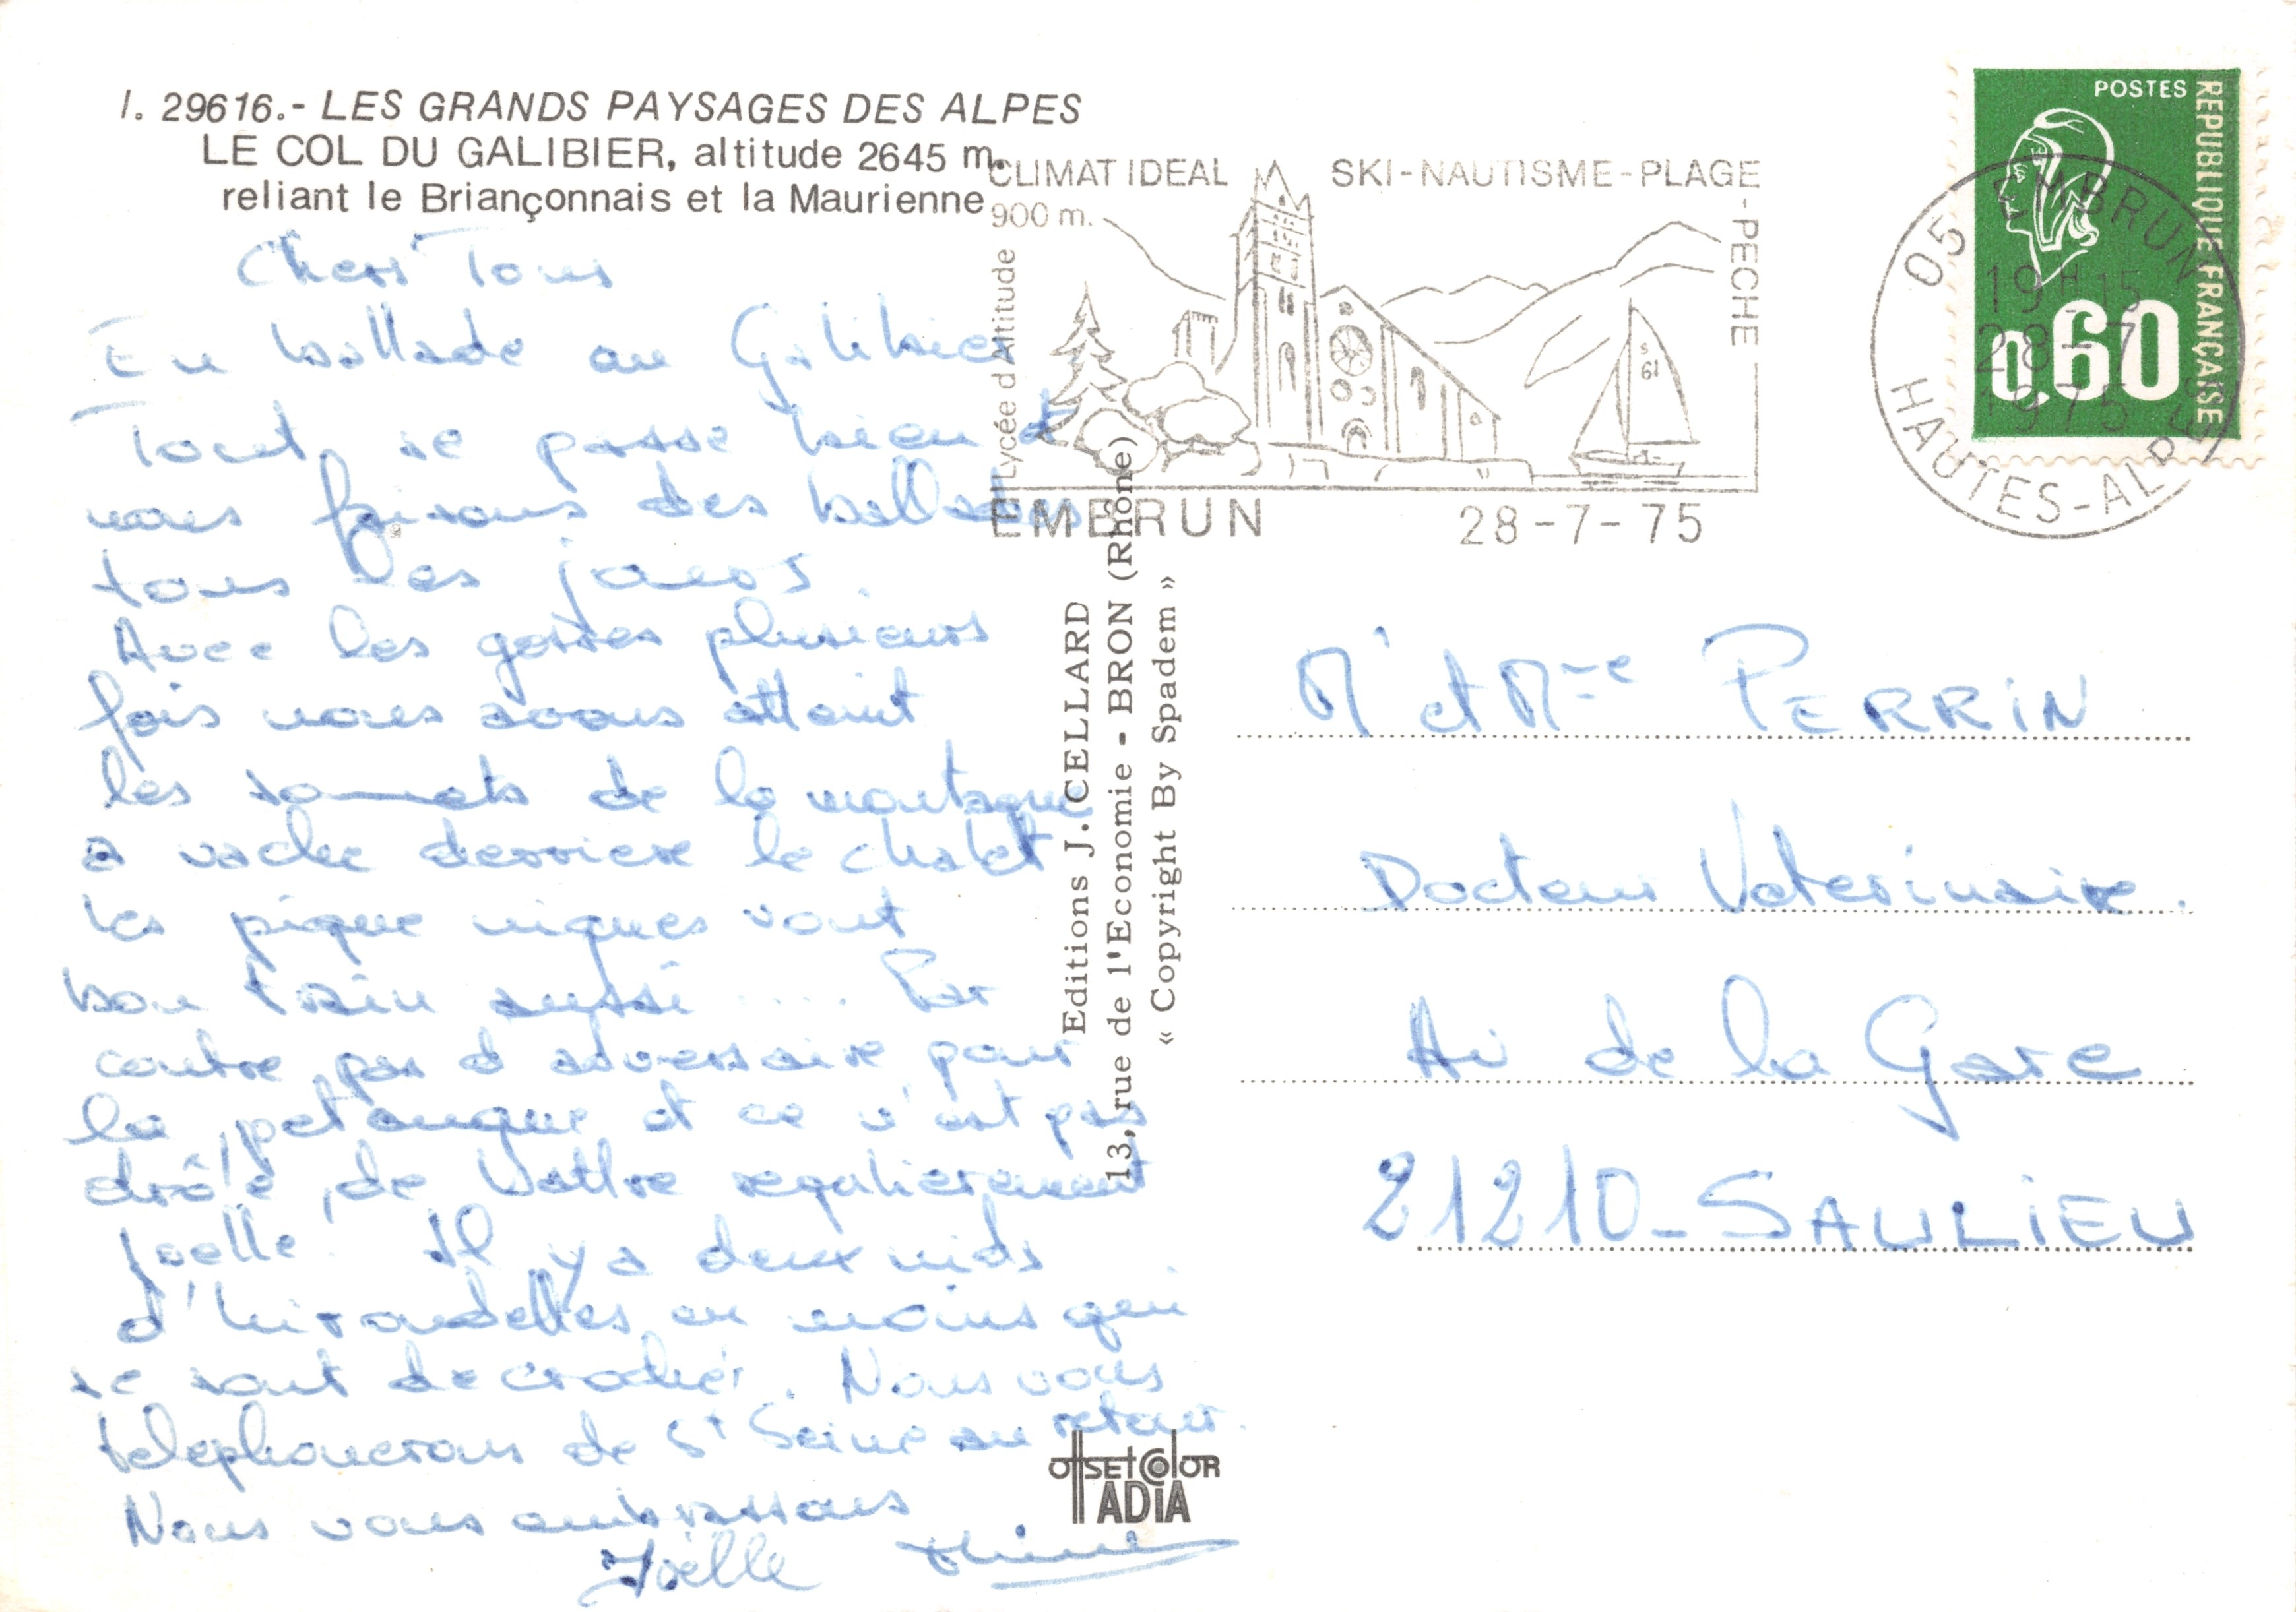 I. 29616.- LES GRANDS PAYSAGES DES ALPES
LE COL DU GALIBIER, altitude 2645 m.
reliant le Briançonnais et la Maurienne
Chers Tous
En ballade au Galibier
Tout se passe bien et
nous faisons des ballades
tous les jours.
Avec les gosses plusieurs
fois nous avons atteint
les sommets de la montagne
a vache derriere le chalet
les pique niques vont
bon train aussi .... Par
contre pas d adversaire pour
la petanque et ce n'est pas
drôle de battre regulierement
Joelle. Il y a deux nids
d'hirondelles au moins qui
se sont decrochés. Nous vous
telephonerons de St Seine au retour.
Nous vous embrassons
Joëlle
CLIMAT IDEAL SKI-NAUTISME-PLAGE-PECHE
900 m.
Lycée d'Altitude
S
61
EMBRUN 28-7-75
POSTES
REPUBLIQUE FRANÇAISE
0,60
05 EMBRUN
19H15
28-7
1975
HAUTES-ALPES
Editions J. CELLARD
13, rue de l'Economie - BRON (Rhône)
« Copyright By Spadem »
Mr et Mme PERRIN
Docteur Veterinaire.
Av de la Gare
21210-SAULIEU
OFFSET COLOR
ADIA